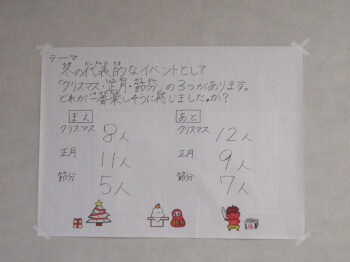 テーマ
冬の代表的なイベントとして
「クリスマス・正月・節分」の3つがあります。
どれが一番楽しそうに感じましたか？
まえ あと
クリスマス 8人 クリスマス 12人
正月 11人 正月 9人
節分 5人 節分 7人